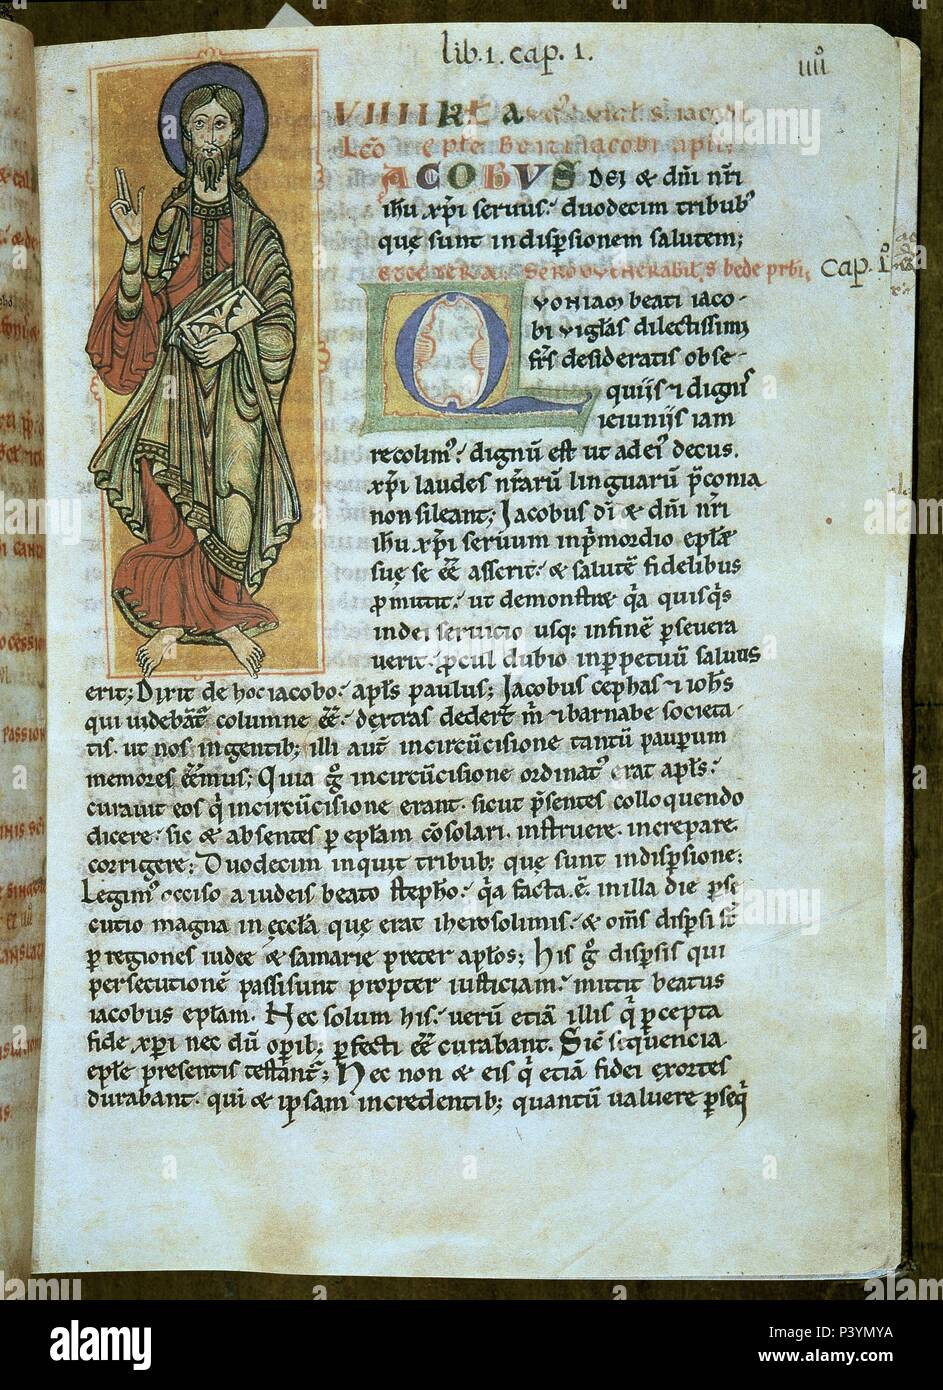 lib. 1. cap. 1.
iiij
VIIII kła
Lec̄o epłe Beati iacobi apłi;
IACOBUS dei & dñi nr̄i
ihu xp̄i seruus. duodecim tribubꝰ
quę sunt in disp̄sionem salutem;
SERMO VENERABILIS bede prbi;
cap. 1
QVONIAM beati iaco-
bi vigłas dilectissimi
frs̄ desideratis obse-
quiis & dignis
ieiuniis iam
recolimꝰ. dignū est ut ad eiꝰ decus.
xp̄i laudes nr̄arū linguarū p̄conia
non sileant; Jacobus dī & dñi nr̄i
ihu xp̄i seruum in p̄mordio epłæ
suę se eē̄ asserit. & salutē fidelibus
p̄mittit. ut demonstraꝫ qa quisqs
in dei seruicio usq; in finē p̄seuera
uerit. p̄cul dubio in p̄petuū saluus
erit; Dixit de hoc iacobo. apłs paulus; Jacobus cephas & iohs̄
qui uidebāt̄ columne eē̄. dextras dedert̄ m̄ & barnabe societa-
tis. ut nos in gentib; illi aut̄ in circūcisione tantū pauperum
memores eē̄mus; Quia g̊ in circūcisione ordinatꝰ erat apłs.
curauit eos q̄ in circūcisione erant. sicut p̄sentes colloquendo
dicere. sic & absentes p̱ epłam cōsolari. instruere. increpare.
corrigere; Duodecim inquit tribub; quę sunt in disp̄sione;
Legimꝰ occiso a iudeis beato stepho. qa facta. ē. in illa die p̄se
cutio magna in ęccła quę erat iherosolimis. & om̄s disp̄si st̄
p̱ regiones iudee & samarie preter apłos; His g̊ disp̄sis qui
persecutionē passi sunt propter iusticiam. mittit beatus
iacobus epłam. Nec solum his. uerū etiā illis q̄ p̱cepta
fide xp̄i nec dū opib; p̱fecti eē̄ curabant. Sic̄ sequencia
epłe presentis testānt̄; Nec non & eis q̄ etiā fidei exortes
durabant. qui & ipsam in credentib; quantū ualuere p̱seq̄
alamy
Image ID: P3YMYA
www.alamy.com